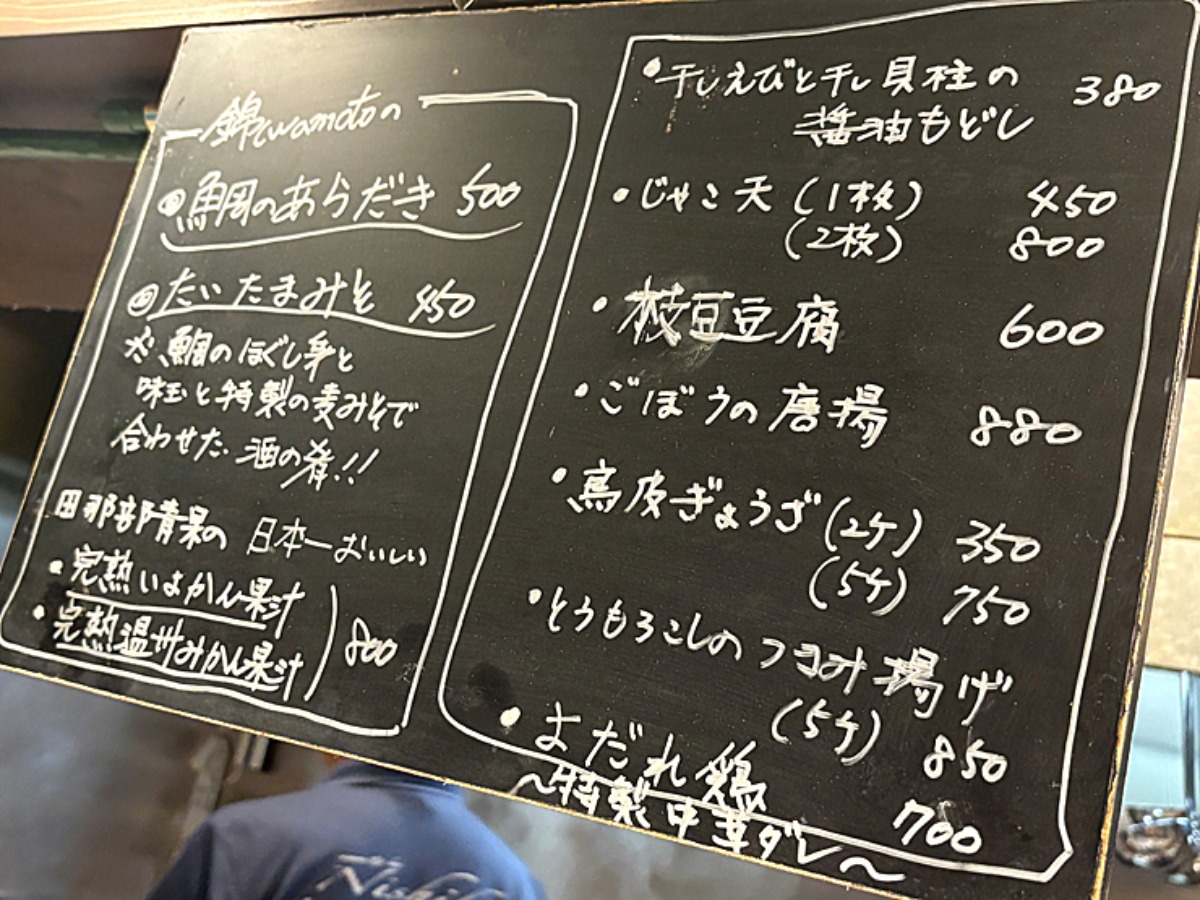 錦iwamotoの
鯛のあらだき 500
たいたまみそ 450
※鯛のほぐし身と
味玉と特製の麦みそで
合わせた酒の肴!!
田那部青果の 日本一おいしい
・完熟いよかん果汁
・完熟温州みかん果汁 800
・干しえびと干し貝柱の 380
醤油もどし
・じゃこ天 (1枚) 450
(2枚) 800
・枝豆豆腐 600
・ごぼうの唐揚 880
・鳥皮ぎょうざ (2ケ) 350
(5ケ) 750
・とうもろこしのつまみ揚げ
(5ケ) 850
・よだれ鶏
〜特製中華ダレ〜 700